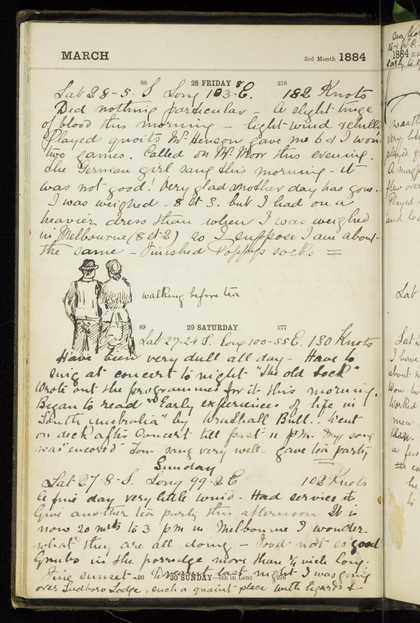 MARCH
3rd Month 1884
88 28 FRIDAY 278
Lat 28-5 S Long 103-E. 182 Knots
Did nothing particular - A slight tinge
of blood this morning - light wind
Played quoits Mr Henson gave me 6 & I won
two games. Called on Mr Moor this evening.
The German girl sang this morning - it
was not good! Very glad another day has gone.
I was weighed - 8 st 3. but I had on a
heavier dress than when I was weighed
in Melbourne (8 st 2) so I suppose I am about
the same - Finished Poppy's socks =
walking before tea
89 29 SATURDAY 277
Lat 27-24 S. Long 100-55 E. 130 Knots
Have been very dull all day - Have to
sing at concert to night "The old Lock"
Wrote out the programmes for it this morning.
Began to read "Early experiences of life in
South Australia" by Bull. Went
on deck after Concert till past 11 pm. My song
was "encored" Tom sang very well. gave tea party
Sunday
Lat 27-8-S. Long 99-2 E 102 Knots
A fine day very little wind - Had service &
Give another tea party this afternoon It is
now 20 mts to 3 pm in Melbourne I wonder
what they are all doing - Food not so good
Grubs in the porridge more than ¼ inch long.
Fine sunset - last night I was going
90 30 SUNDAY-5th in Lent
over Ludboro Lodge, such a quaint place with